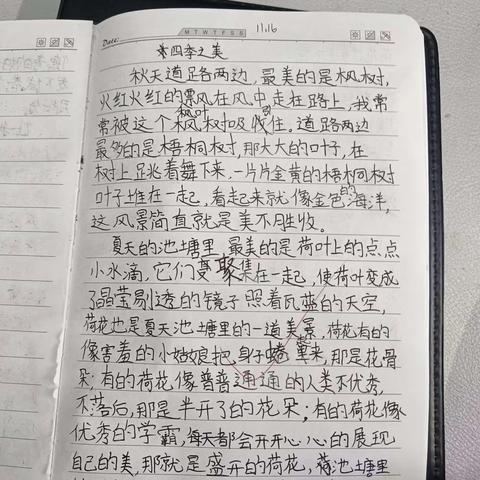 Date:
M T W T F S S
11.16
四季之美
秋天道路两边,最美的是枫树,
火红火红的飘在风中走在路上,我常
枫叶
常被这个枫树吸收住。道路两边
最多的是梧桐树,那大大的叶子,在
树上跳着舞下来,一片片金黄的梧桐树
叶子堆在一起,看起来就像金色的海洋,
这风景简直就是美不胜收。
夏天的池塘里,最美的是荷叶上的点点
小水滴,它们聚集在一起,使荷叶变成
了晶莹剔透的镜子照着瓦蓝的天空,
荷花也是夏天池塘里的一道美景,荷花有的
像害羞的小姑娘把身子蜷起来,那是花骨
朵;有的荷花像普普通通的人类不优秀,
不落后,那是半开了的花朵;有的荷花像
优秀的学霸,每天都会开开心心的展现
自己的美,那就是盛开的荷花,荷池塘里